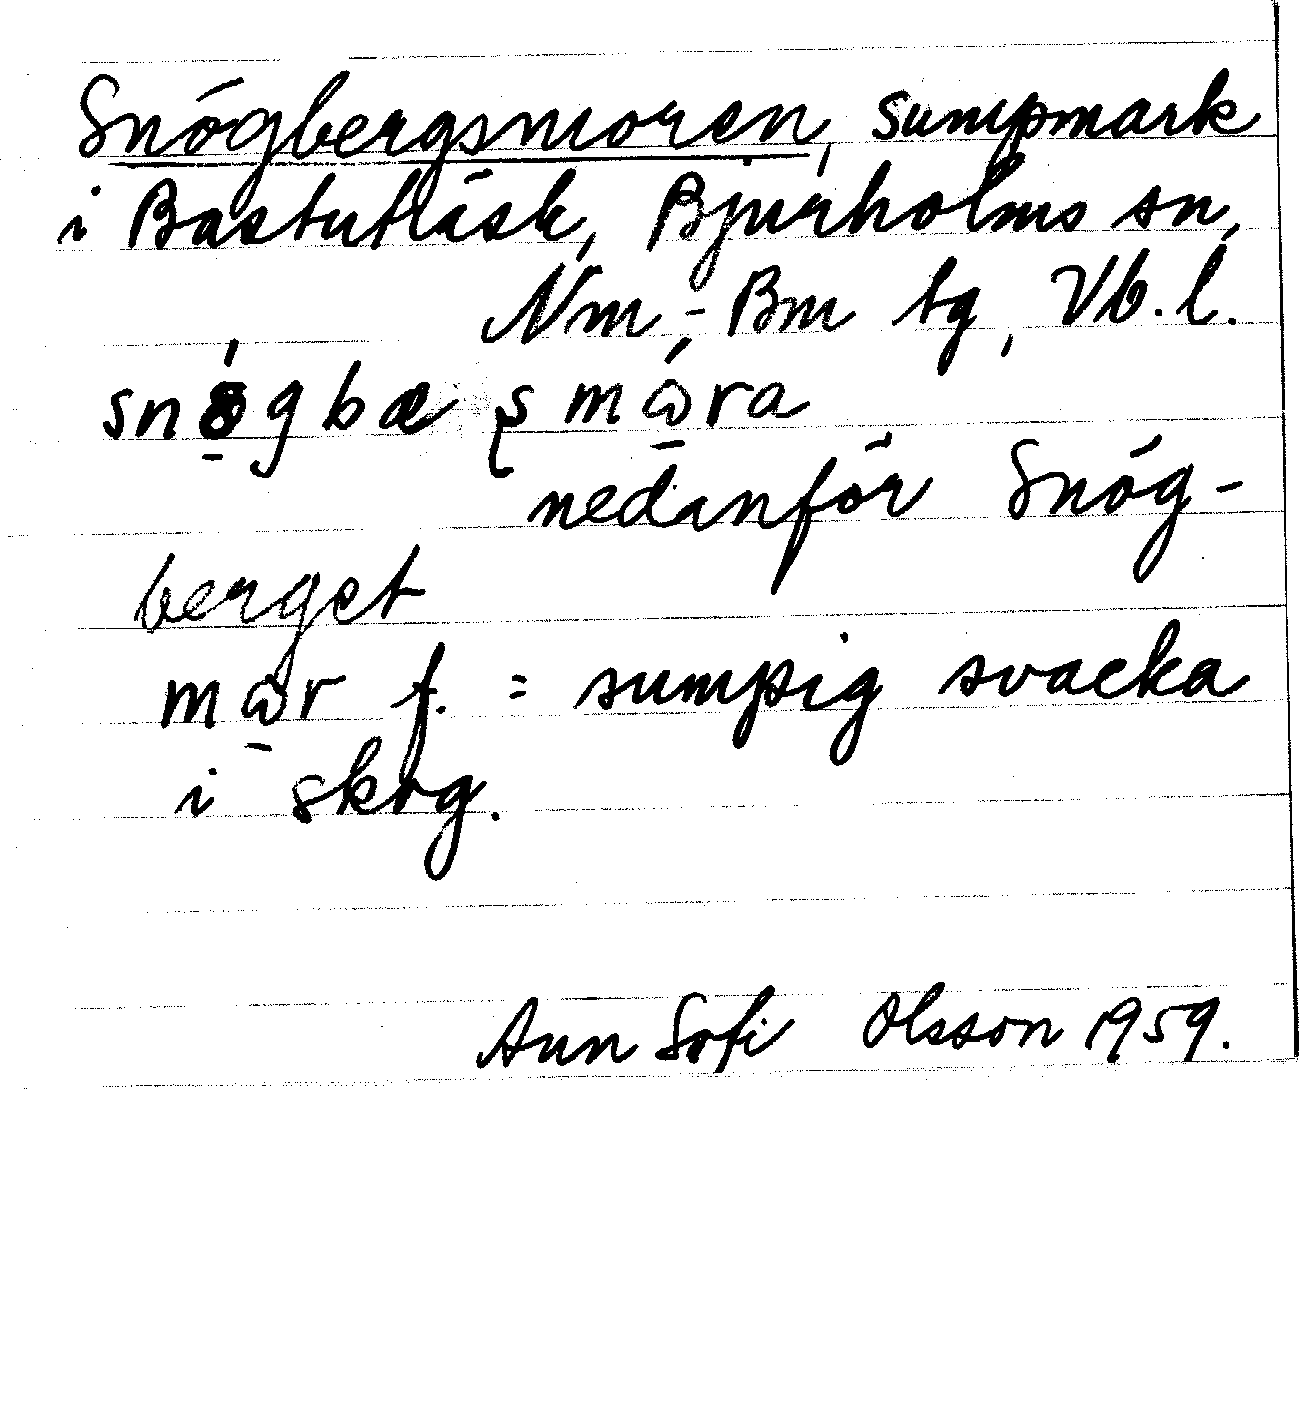 Snögbergsmoren, sumpmark
i Bastuträsk, Bjurholms sn,
Nm-Bm tg, Vb.l.
nedanför Snög-
berget
f. = sumpig svacka
i skog.
Ann Sofi Olsson 1959.